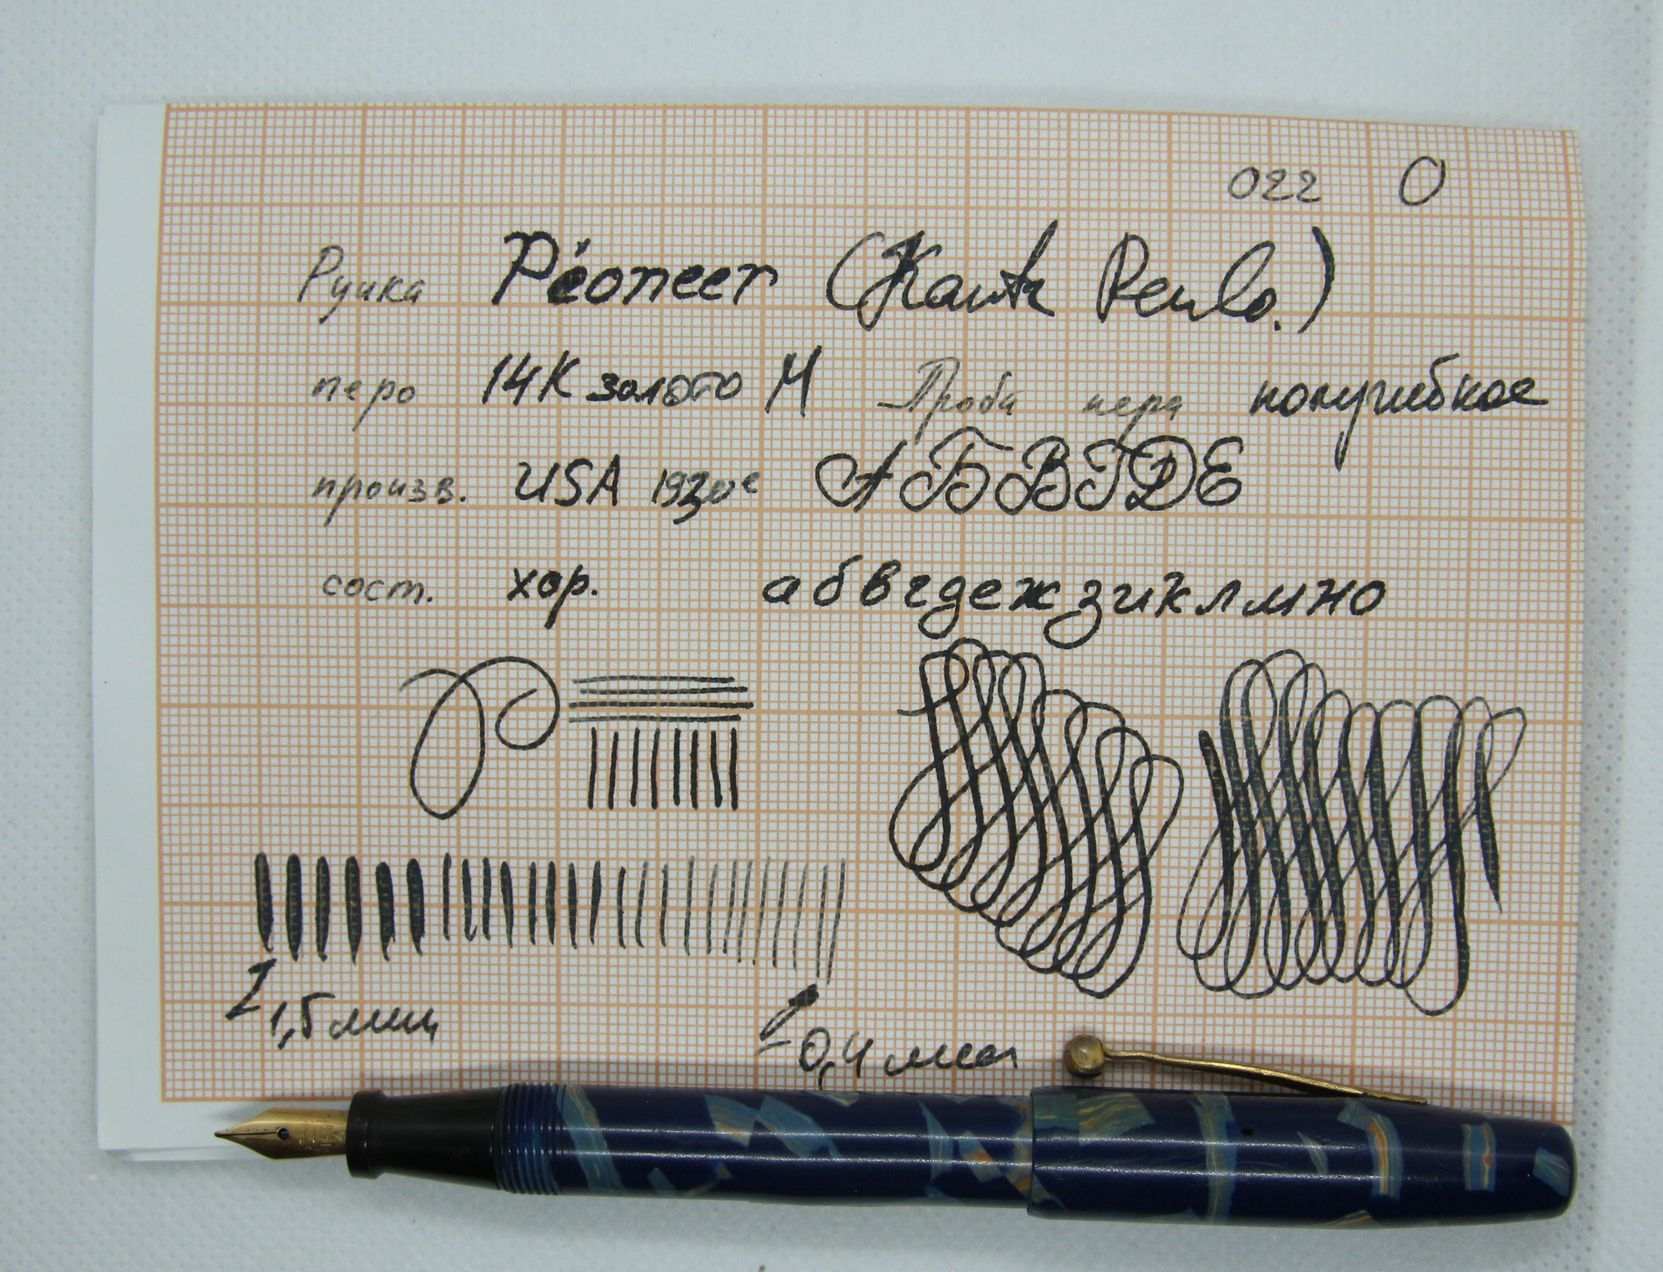 022 O
Ручка Pioneer (Kantk Pen Co.)
перо 14К золото М Проба пера полугибкое
произв. USA 1930е АБВГДЕ
сост. хор. абвгдежзиклмно
1,5 мм
0,4 мм